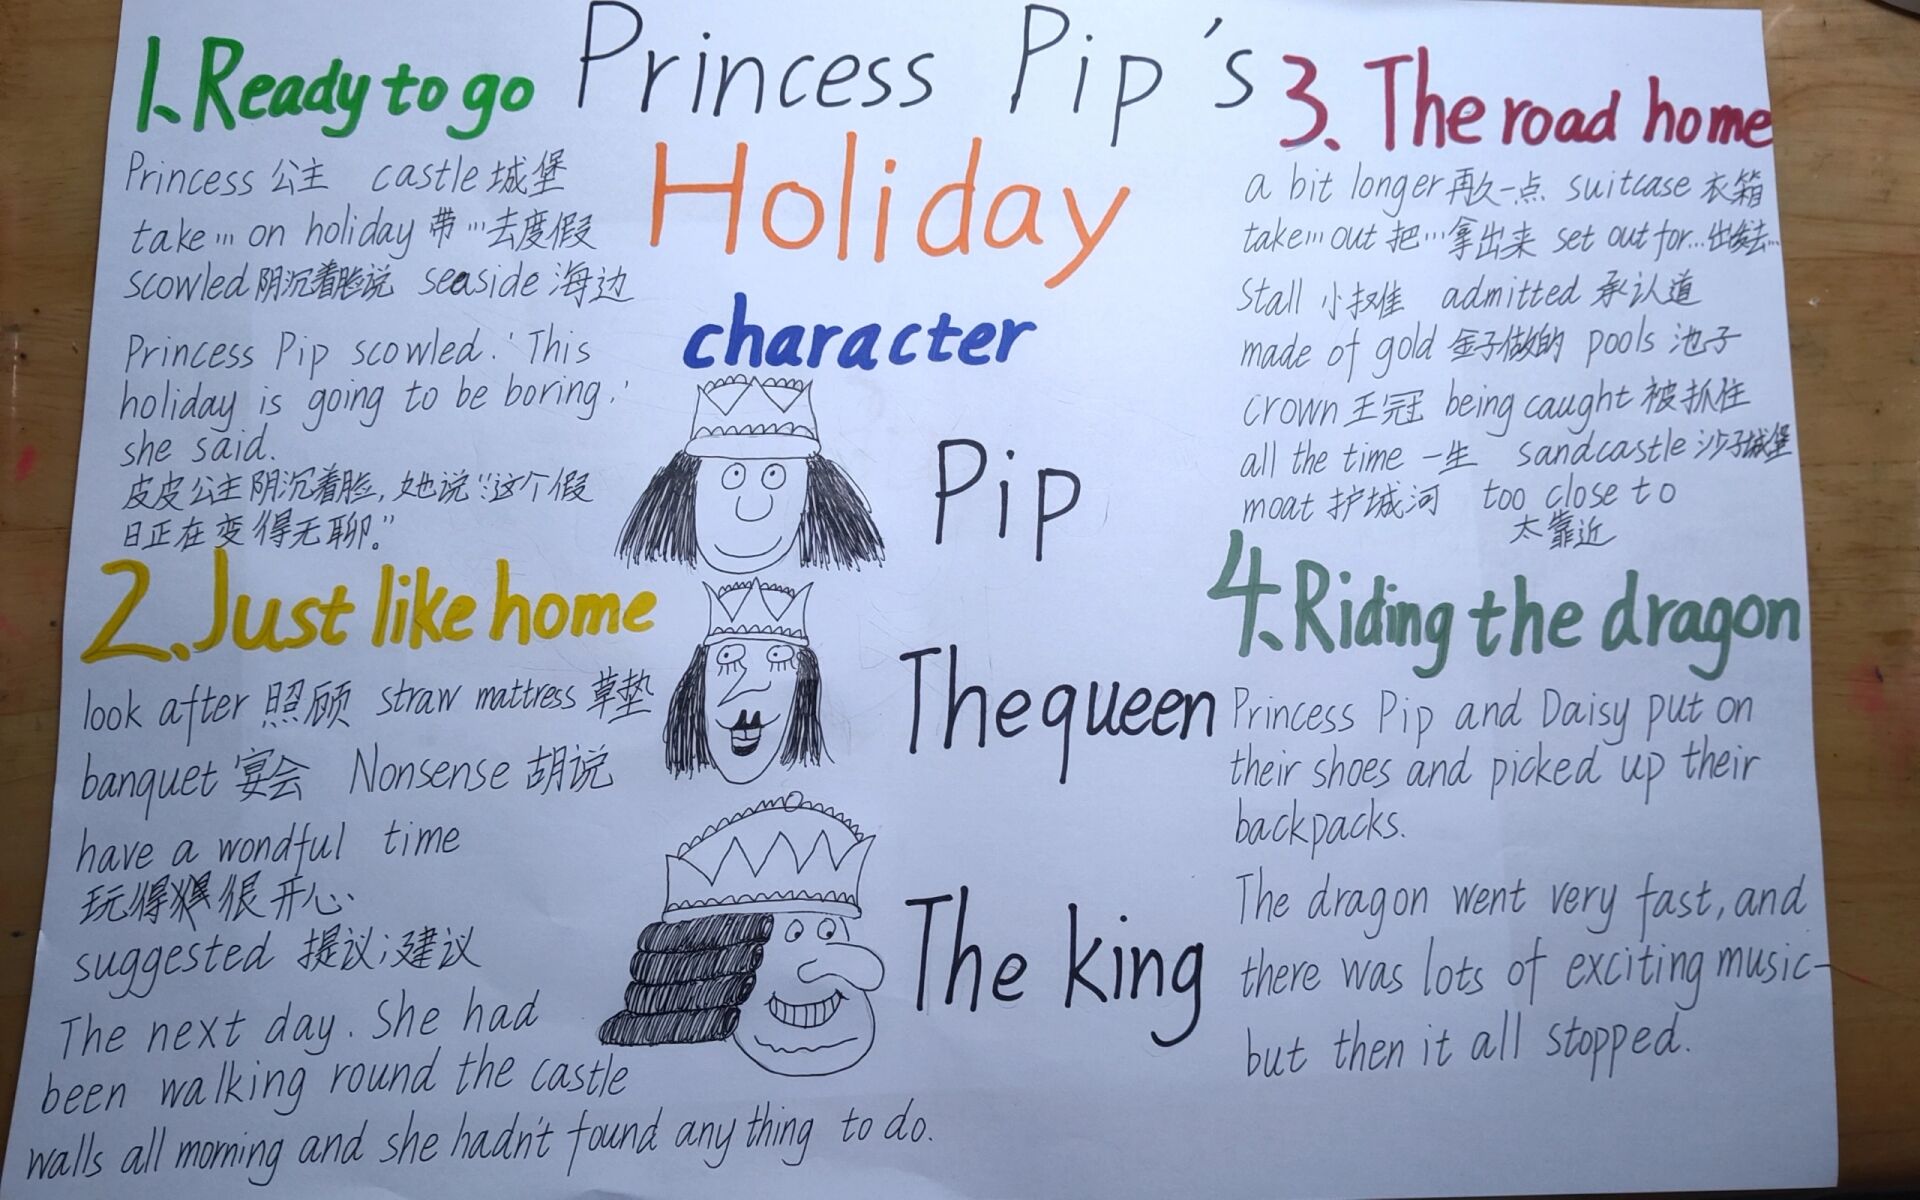 Princess Pip's
Holiday
character
Pip
The queen
The king
1. Ready to go
Princess 公主 castle 城堡
take ... on holiday 带...去度假
scowled 阴沉着脸说 seaside 海边
Princess Pip scowled. 'This
holiday is going to be boring,'
she said.
皮皮公主阴沉着脸,她说:"这个假
日正在变得无聊。"
2. Just like home
look after 照顾 straw mattress 草垫
banquet 宴会 Nonsense 胡说
have a wondful time
玩得很开心
suggested 提议;建议
The next day. She had
been walking round the castle
walls all morning and she hadn't found any thing to do.
3. The road home
a bit longer 再久一点 suitcase 衣箱
take...out 把...拿出来 set out for... 出发去...
Stall 小摊 admitted 承认道
made of gold 金子做的 pools 池子
crown 王冠 being caught 被抓住
all the time 一生 sandcastle 沙子城堡
moat 护城河 too close to
太靠近
4. Riding the dragon
Princess Pip and Daisy put on
their shoes and picked up their
backpacks.
The dragon went very fast, and
there was lots of exciting music-
but then it all stopped.